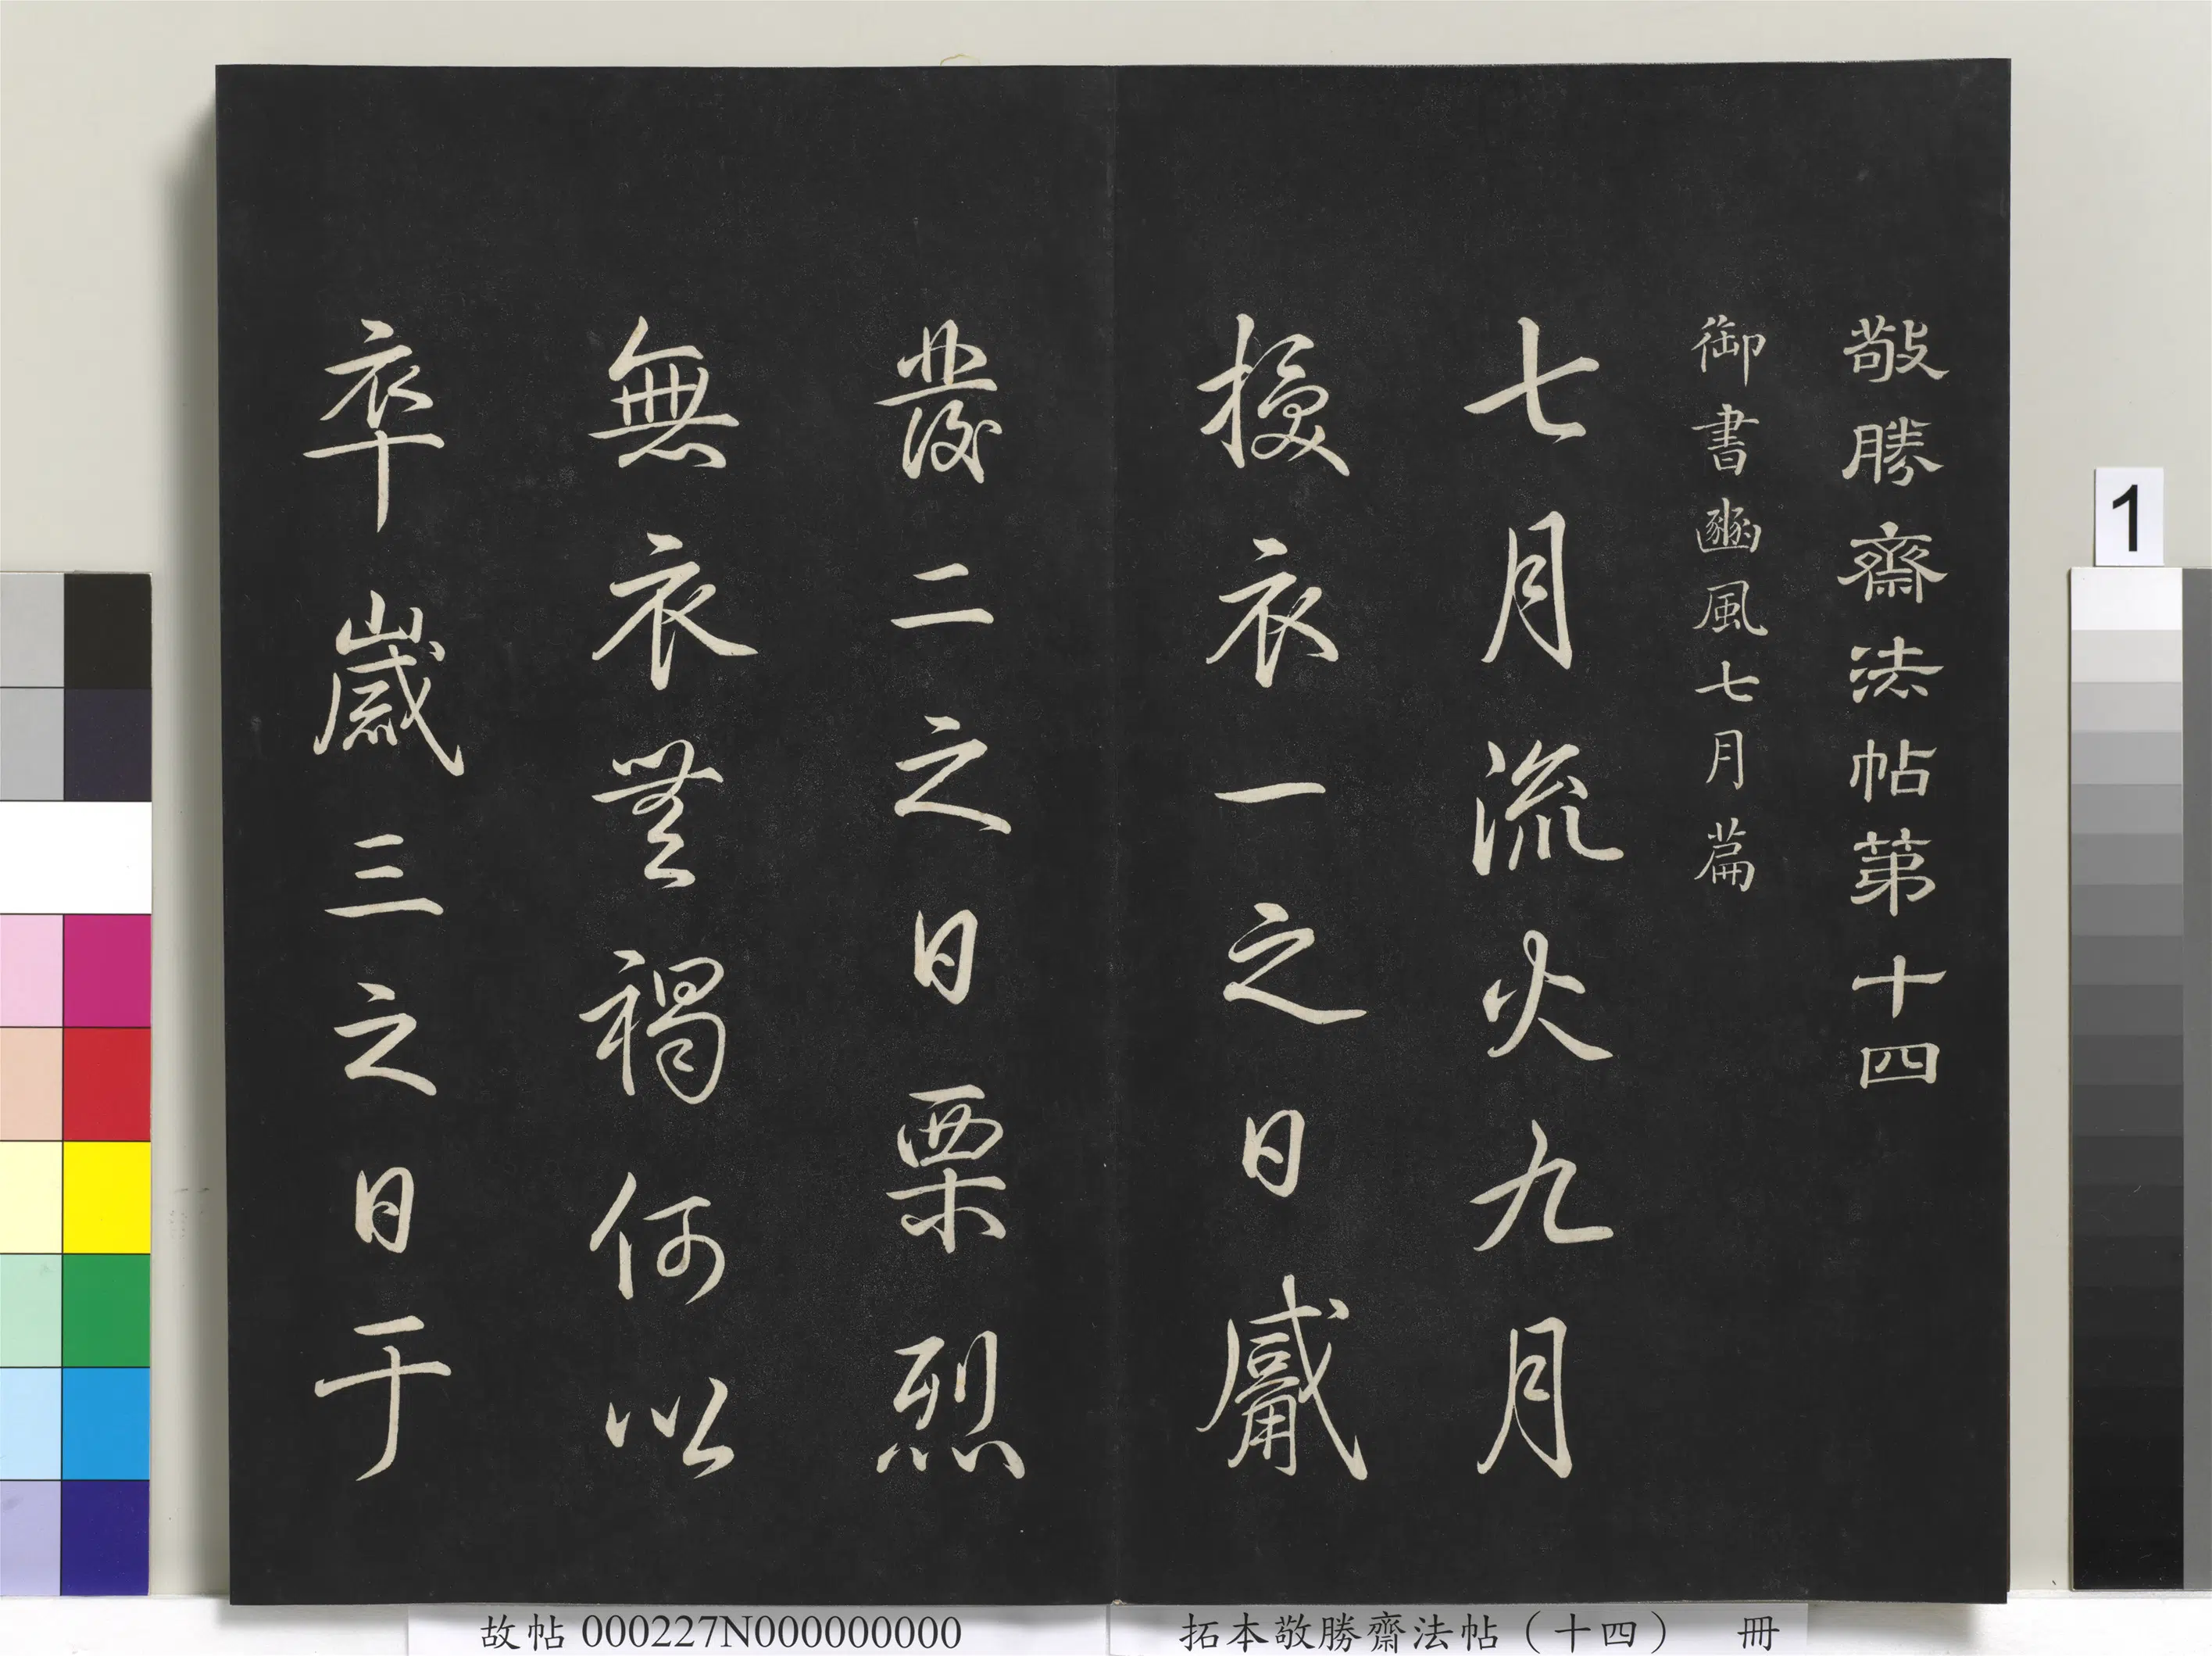 敬勝齋法帖第十四
御書豳風七月篇
七月流火九月
授衣一之日觱
發二之日栗烈
無衣無褐何以
卒歲三之日于
1
故帖 000227N000000000
拓本敬勝齋法帖（十四） 冊